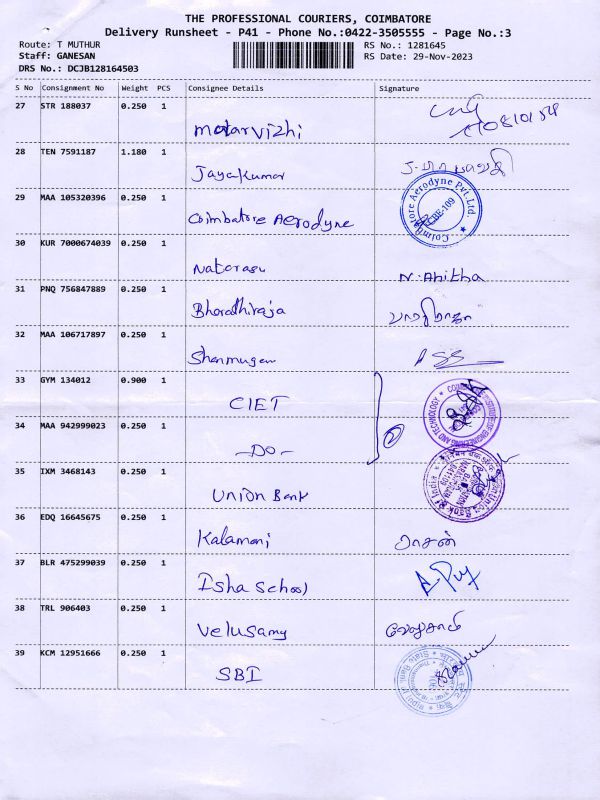 THE PROFESSIONAL COURIERS, COIMBATORE
Delivery Runsheet - P41 - Phone No.:0422-3505555 - Page No.:3
Route: T MUTHUR RS No.: 1281645
Staff: GANESAN RS Date: 29-Nov-2023
DRS No.: DCJB128164503
S No Consignment No Weight PCS Consignee Details Signature
27 STR 188037 0.250 1
Malarvizhi
28 TEN 7591187 1.180 1
Jayakumar
29 MAA 105320396 0.250 1
Coimbatore Aerodyne
Coimbatore Aerodyne Pvt.Ltd.
CBE-109
30 KUR 7000674039 0.250 1
Natarasu N. Anitha
31 PNQ 756847889 0.250 1
Bharathiraja பாரதிராஜா
32 MAA 106717897 0.250 1
Shanmugam
33 GYM 134012 0.900 1
CIET
34 MAA 942999023 0.250 1
-DO- 2
35 IXM 3468143 0.250 1
Union Bank
36 EDQ 16645675 0.250 1
Kalamani ராசன்
37 BLR 475299039 0.250 1
Isha School
38 TRL 906403 0.250 1
Velusamy வேலுசாமி
39 KCM 12951666 0.250 1
SBI